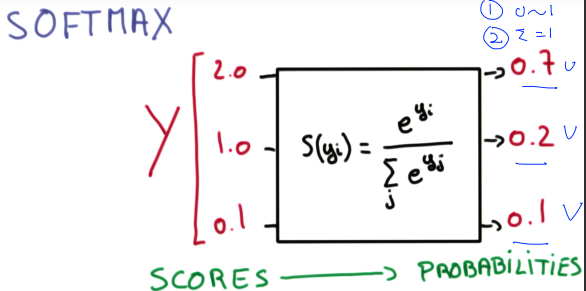 SOFTMAX
① 0~1
② Σ=1
Y
2.0
1.0
0.1
S(yi) = e^yi / Σj e^yj
→0.7
→0.2
→0.1
SCORES → PROBABILITIES